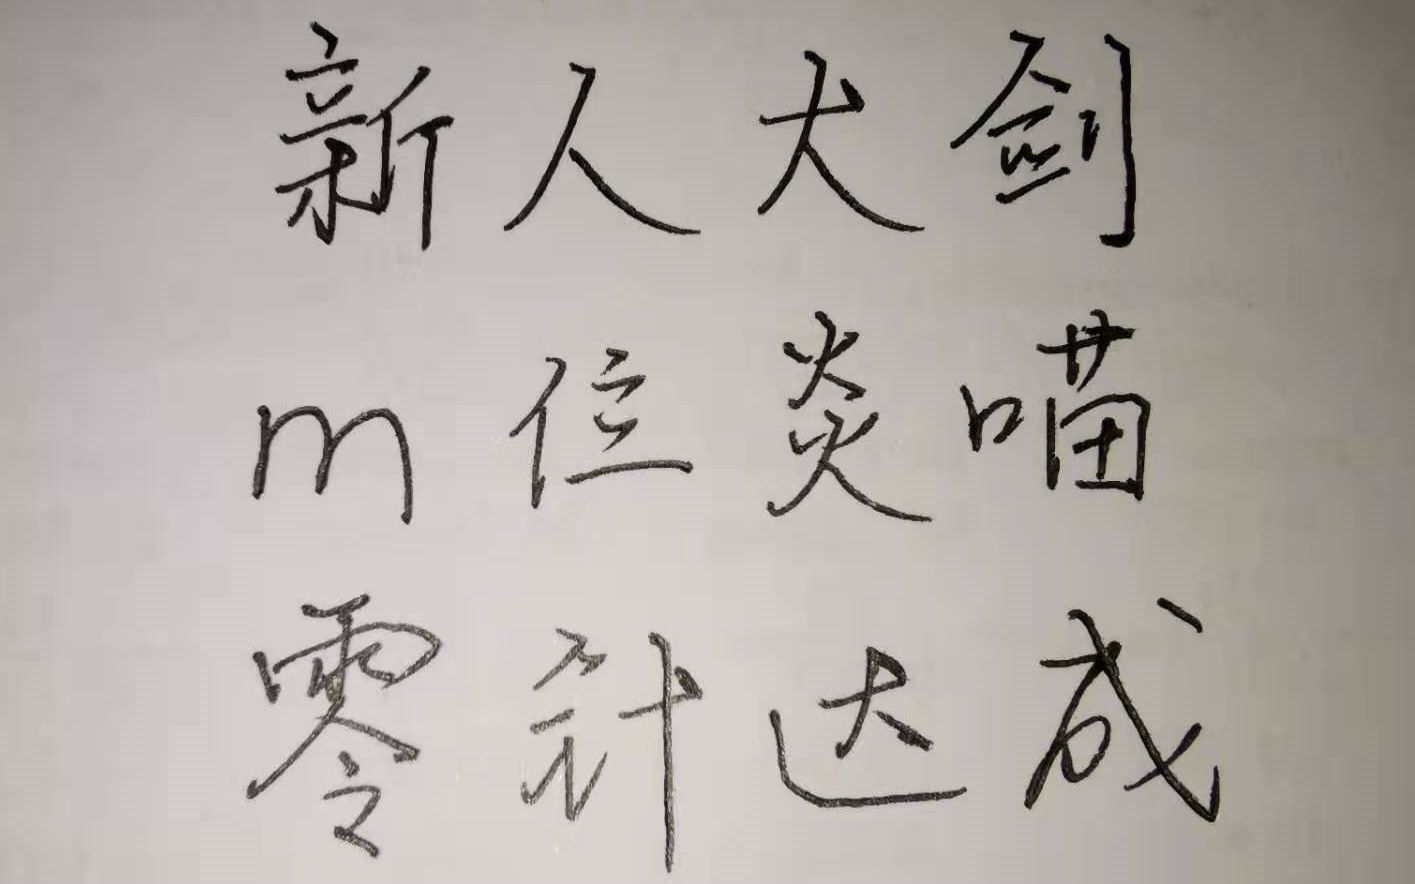 新人大剑
m位炎喵
零计达成